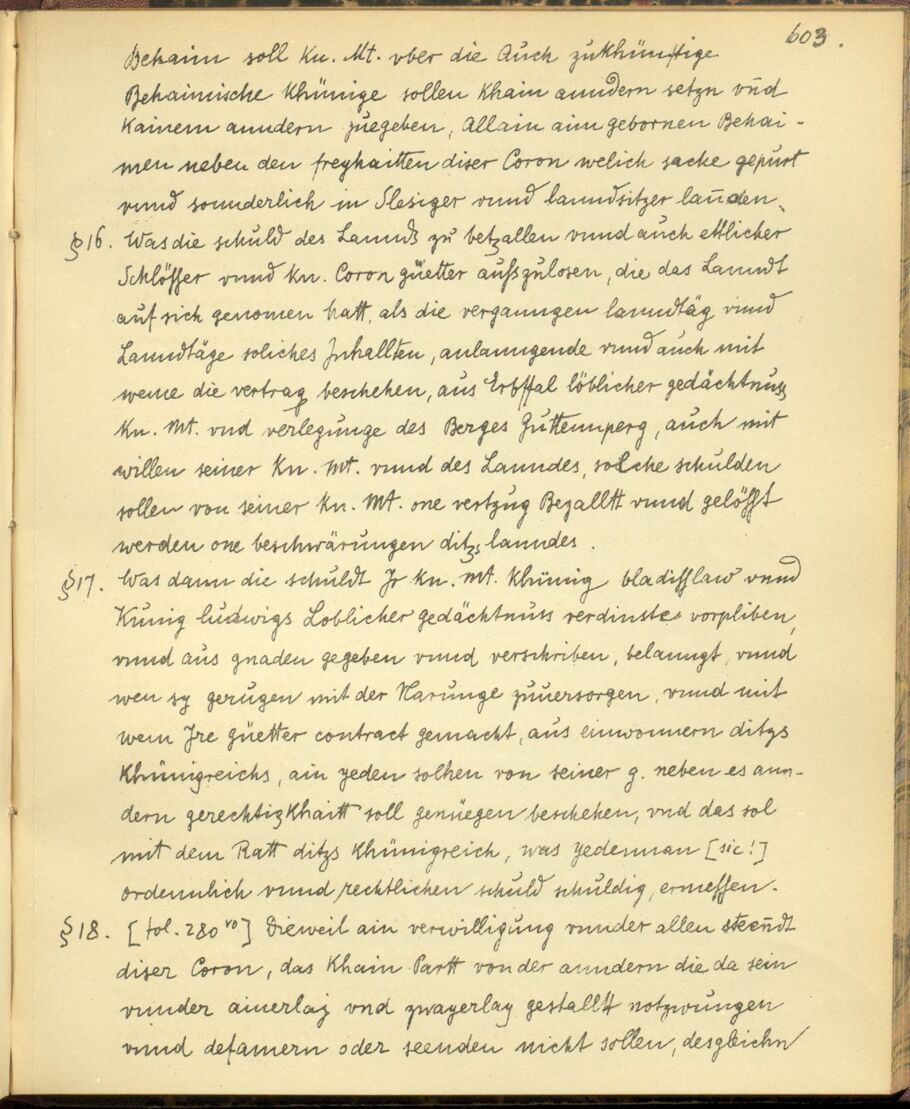 603.
Behaim soll Kn. Mt. vber die Auch zukhünftige
Behaimische Khünige sollen Khain anndern setzn vnd
Kainem anndern zuegeben, Allain aim gebornen Behai-
men neben den freyhaitten diser Coron welich sache gepürt
vnnd sonnderlich in Slesiger vnnd lanndsitzer lannden.
§16. Was die schuld des Lannds zu betzallen vnnd auch ettlicher
Schlösser vnnd Kn. Coron güetter aufszulosen, die das Lanndt
auf sich genomen hatt, als die vergaungen lanndtäg vnnd
Lanndtäge soliches Inhallten, anlanngende vnnd auch mit
weme die vertrag beschehen, aus Erbffal löblicher gedächtnuss
Kn. Mt. vnd verlegunge des Berges Guttemperg, auch mit
willen seiner Kn. Mt. vnnd des Lanndes, solche schulden
sollen von seiner Kn. Mt. one vertzug Bezalltt vnnd gelöfft
werden one beschwärungen ditzs lanndes.
§17. Was dann die schuldt Jr Kn. Mt. Khünig bladifslaw vnnd
Kunig ludwigs Loblicher gedächtnuss verdinste vorpliben,
vnnd aus gnaden gegeben vnnd verschriben, belanngt, vnnd
wen sy gerugen mit der Narunge zuuersorgen, vnnd mit
wem Jre güetter contract gemacht, aus einwonnern ditzs
Khünigreichs, ain yeden solhen von seiner g. neben es ann-
dern gerechtigkhaitt soll genüegen beschehen, vnd das sol
mit dem Ratt ditzs Khünigreich, was yedenman [sic!]
ordennlich vnnd rechtlichen schuld schuldig, ermessen.
§18. [fol. 280 vo] Dieweil ain verwilligung vnnder allen steenndt
diser Coron, das Khain Partt von der anndern die da sein
vnnder ainerlaj vnd zwayerlay gestalltt notzwungen
vnnd defamern oder seenden nicht sollen, desgleichn